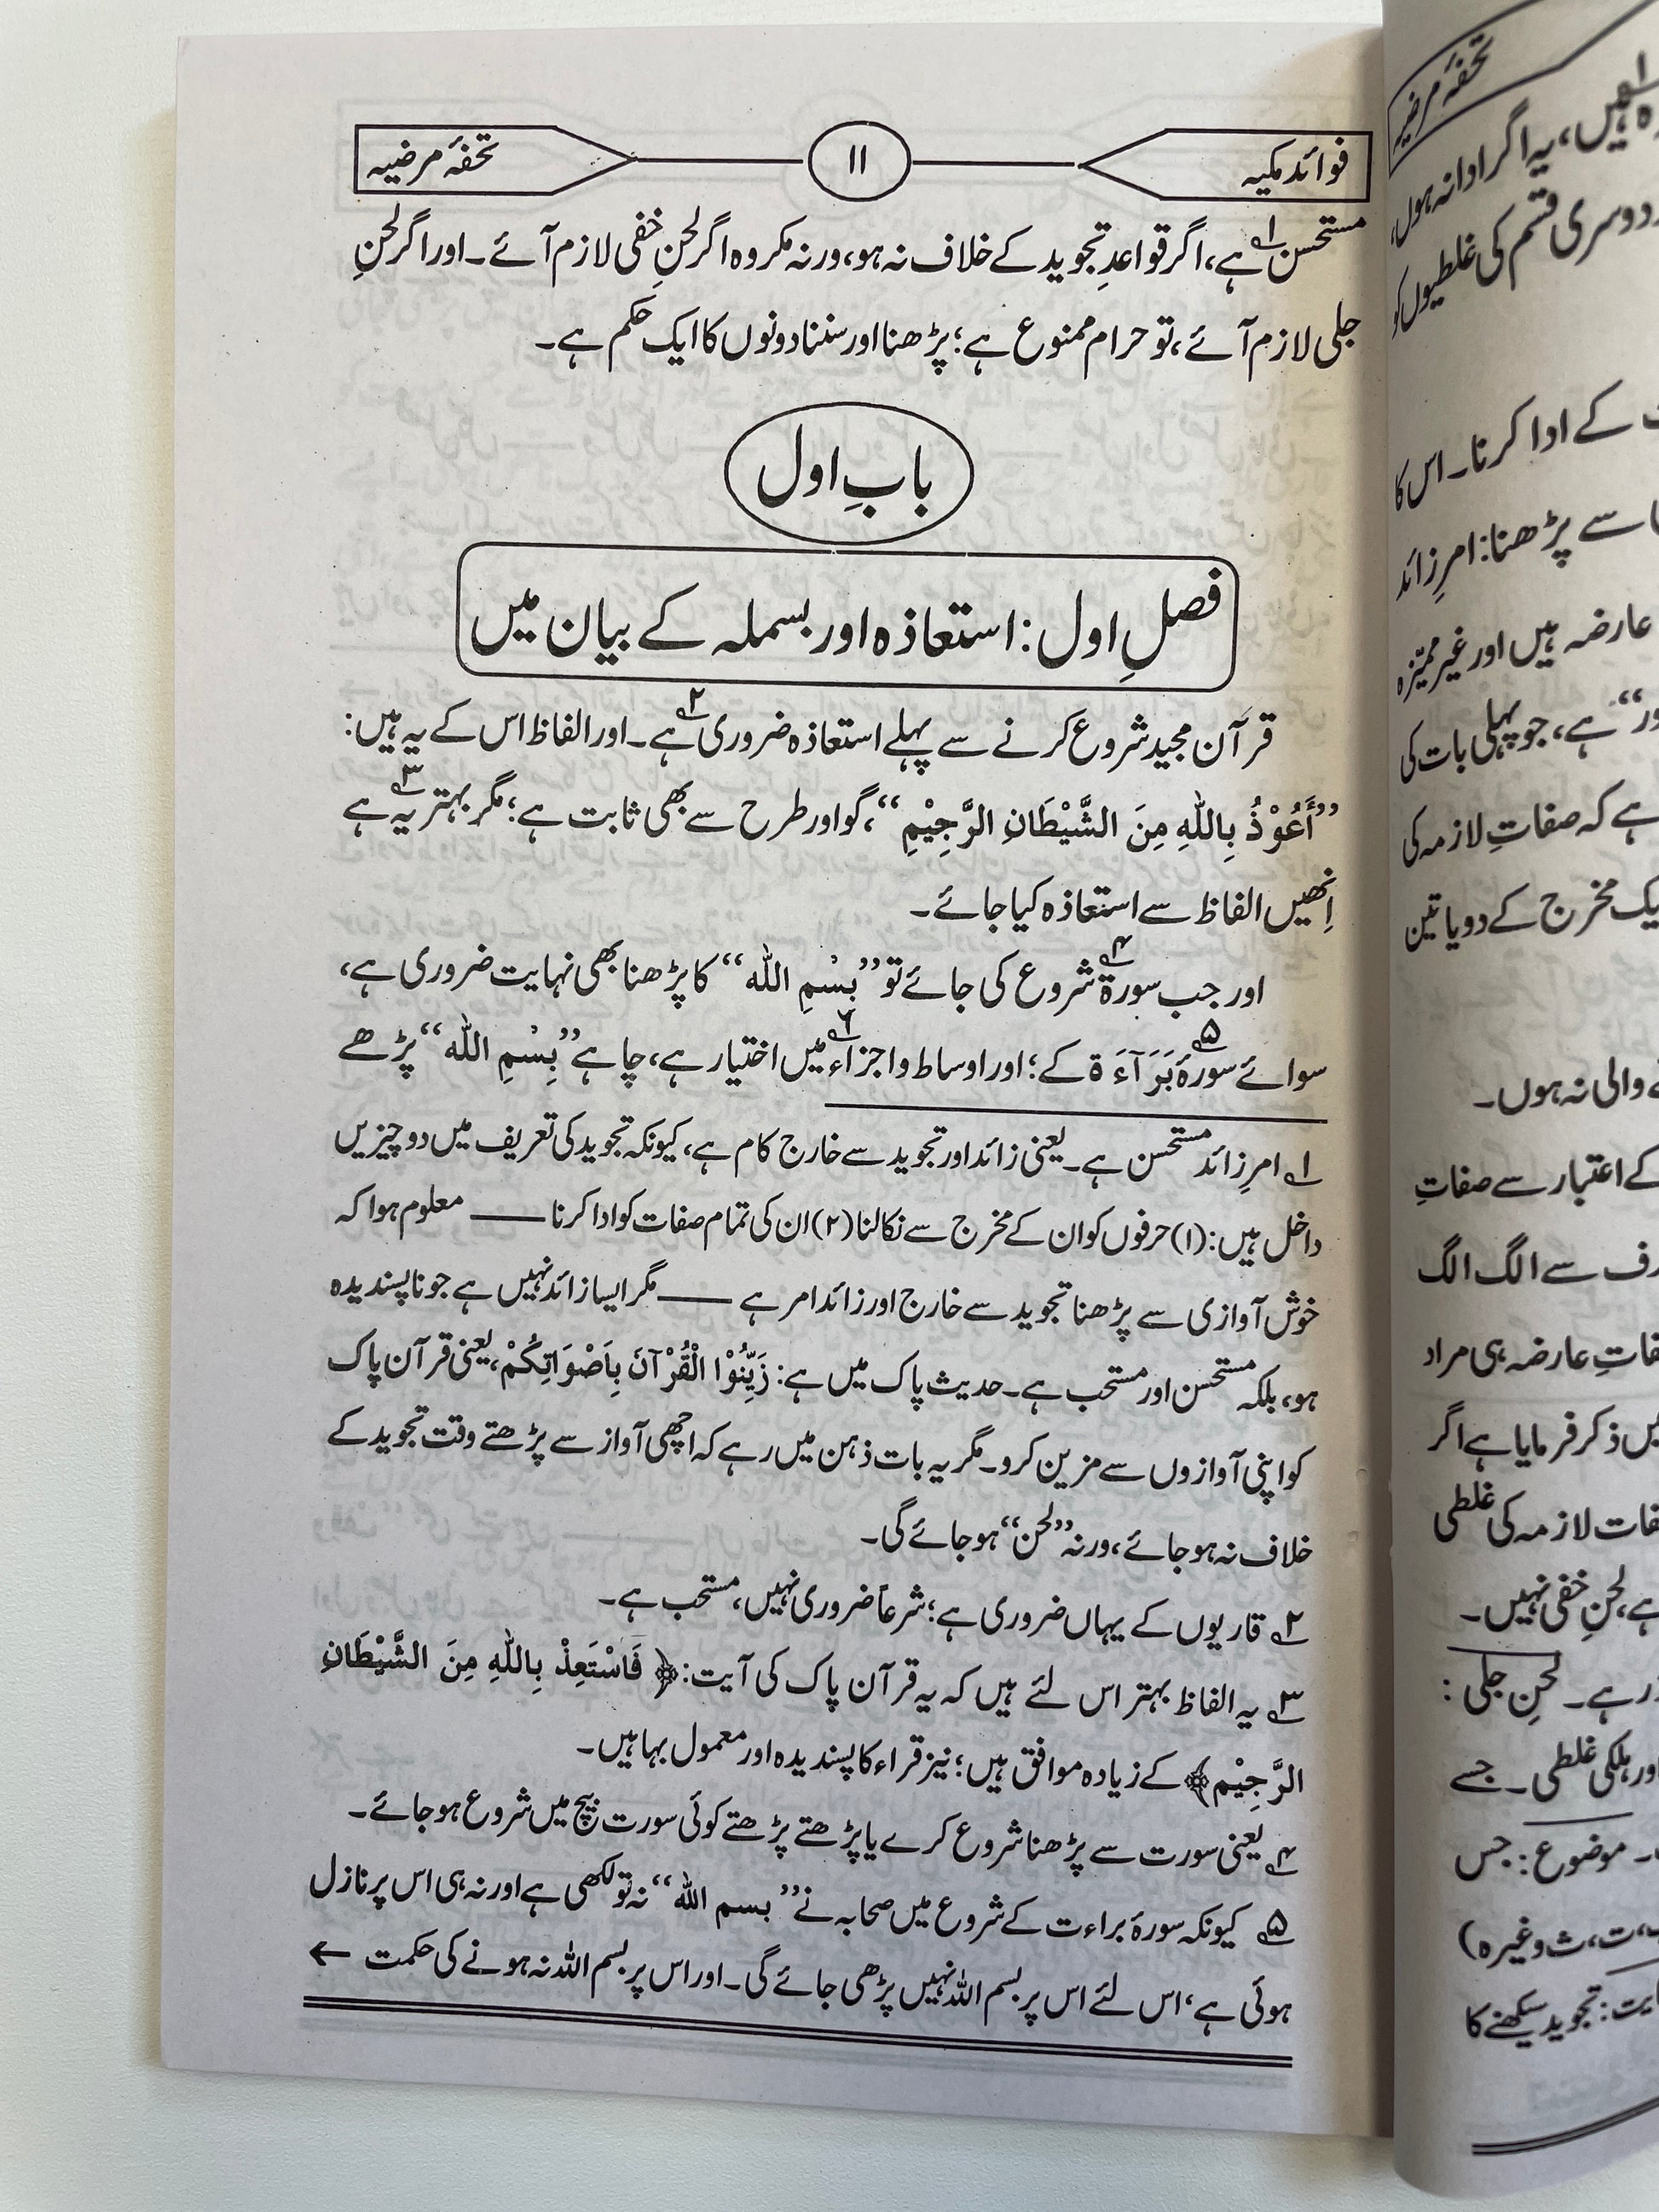 فوائد مکیہ ۱۱ تحفۂ مرضیہ
مستحسن۱؎ ہے، اگر قواعدِ تجوید کے خلاف نہ ہو، ورنہ مکروہ اگر لحنِ خفی لازم آئے۔ اور اگر لحنِ
جلی لازم آئے، تو حرام ممنوع ہے؛ پڑھنا اور سننا دونوں کا ایک حکم ہے۔
بابِ اول
فصلِ اول: استعاذہ اور بسملہ کے بیان میں
قرآن مجید شروع کرنے سے پہلے استعاذہ ضروری۲؎ ہے۔ اور الفاظ اس کے یہ ہیں:
”أَعُوْذُ بِاللّٰهِ مِنَ الشَّيْطَانِ الرَّجِيْمِ“، گو اور طرح سے بھی ثابت ہے؛ مگر بہتر یہ۳؎ ہے
اِنھیں الفاظ سے استعاذہ کیا جائے۔
اور جب سورۃ۴؎ شروع کی جائے تو ”بِسْمِ اللّٰه“ کا پڑھنا بھی نہایت ضروری ہے،
سوائے سورۂ۵؎ بَرَآءَۃ کے؛ اور اوساط و اجزاء۶؎ میں اختیار ہے، چاہے ”بِسْمِ اللّٰه“ پڑھے
۱؎ امرِ زائد مستحسن ہے۔ یعنی زائد اور تجوید سے خارج کام ہے، کیونکہ تجوید کی تعریف میں دو چیزیں
داخل ہیں: (۱) حرفوں کو ان کے مخرج سے نکالنا (۲) ان کی تمام صفات کو ادا کرنا —— معلوم ہوا کہ
خوش آوازی سے پڑھنا تجوید سے خارج اور زائد امر ہے —— مگر ایسا زائد نہیں ہے جو ناپسندیدہ
ہو، بلکہ مستحسن اور مستحب ہے۔ حدیث پاک میں ہے: زَيِّنُوْا الْقُرْآنَ بِاَصْوَاتِكُمْ، یعنی قرآن پاک
کو اپنی آوازوں سے مزین کرو۔ مگر یہ بات ذہن میں رہے کہ اچھی آواز سے پڑھتے وقت تجوید کے
خلاف نہ ہو جائے، ورنہ ”لحن“ ہو جائے گی۔
۲؎ قاریوں کے یہاں ضروری ہے؛ شرعاً ضروری نہیں، مستحب ہے۔
۳؎ یہ الفاظ بہتر اس لئے ہیں کہ یہ قرآن پاک کی آیت: ﴿فَاسْتَعِذْ بِاللّٰهِ مِنَ الشَّيْطَانِ
الرَّجِيْم﴾ کے زیادہ موافق ہیں؛ نیز قراء کا پسندیدہ اور معمول بہا ہیں۔
۴؎ یعنی سورت سے پڑھنا شروع کرے یا پڑھتے پڑھتے کوئی سورت بیچ میں شروع ہو جائے۔
۵؎ کیونکہ سورۂ براءت کے شروع میں صحابہ نے ”بسم اللّٰه“ نہ تو لکھی ہے اور نہ ہی اس پر نازل
ہوئی ہے، اس لئے اس پر بسم اللہ نہیں پڑھی جائے گی۔ اور اس پر بسم اللہ نہ ہونے کی حکمت ←
تحفۂ مرضیہ
ہیں، یہ اگر ادا نہ ہوں،
دوسری قسم کی غلطیوں کو
کے ادا کرنا۔ اس کا
سے پڑھنا: امرِ زائد
عارضہ ہیں اور غیر ممیّزہ
ہے، جو پہلی بات کی
ہے کہ صفاتِ لازمہ کی
ایک مخرج کے دو یا تین
والی نہ ہوں۔
کے اعتبار سے صفاتِ
سے الگ الگ
عارضہ ہی مراد
ذکر فرمایا ہے اگر
لازمہ کی غلطی
ہے، لحنِ خفی نہیں۔
رہے۔ لحنِ جلی:
اور ہلکی غلطی۔ جسے
موضوع: جس
ت، ث وغیرہ)
تجوید سیکھنے کا